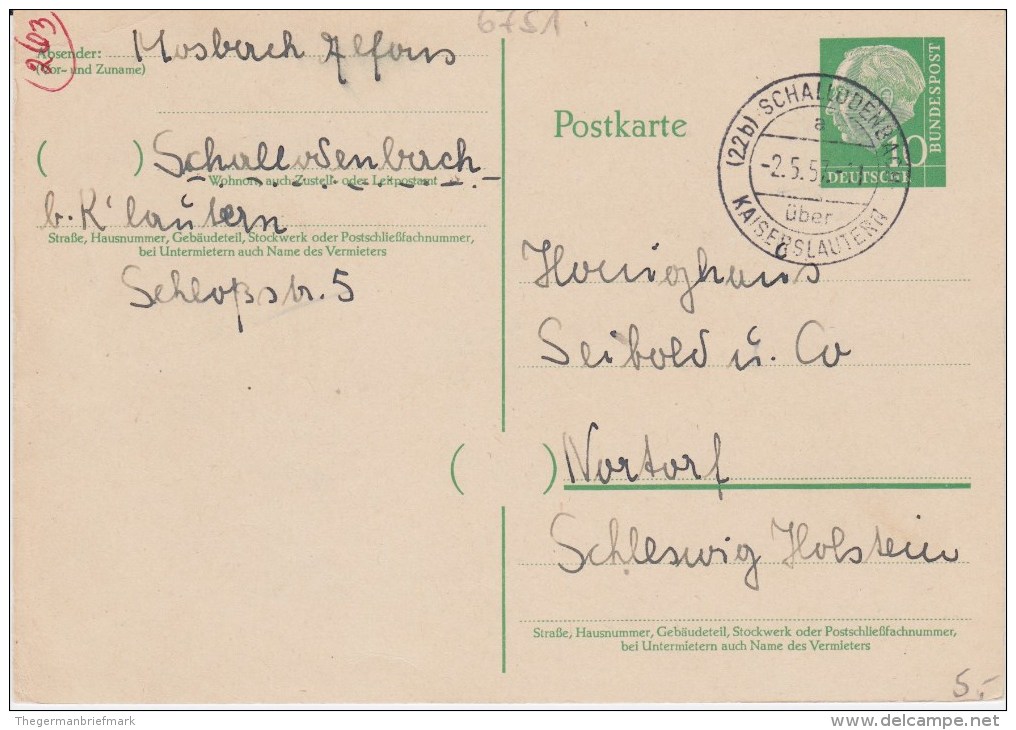 (203
6751
Absender: Mosbach Alfons
(Vor- und Zuname)
( ) Schallodenbach
Wohnort, auch Zustell- oder Leitpostamt
b. K'lautern
Straße, Hausnummer, Gebäudeteil, Stockwerk oder Postschließfachnummer,
bei Untermietern auch Name des Vermieters
Schloßstr. 5
Postkarte
(22b) SCHALLODENBACH
a
-2.5.57
über
KAISERSLAUTERN
c
10
DEUTSCHE
BUNDESPOST
Honighaus
Seibold u. Co
( ) Nortorf
Schleswig Holstein
Straße, Hausnummer, Gebäudeteil, Stockwerk oder Postschließfachnummer,
bei Untermietern auch Name des Vermieters
5,-
Thegermanbriefmark
delcampe.net